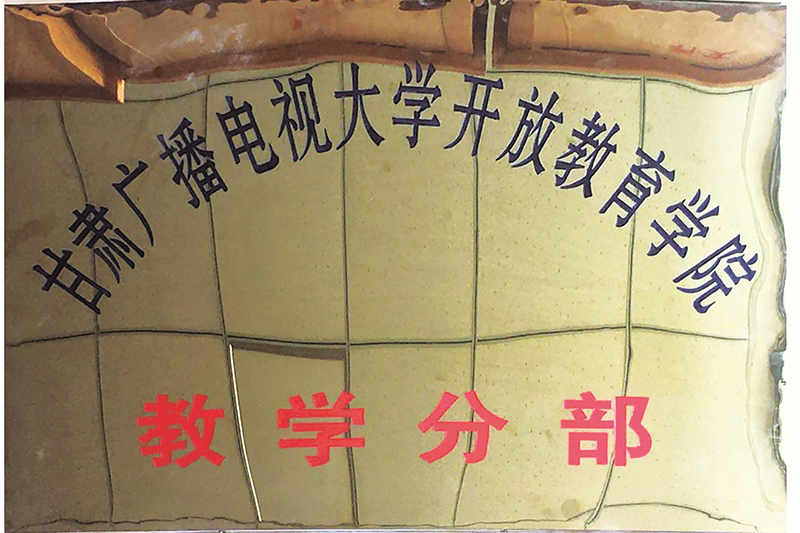 甘肃广播电视大学开放教育学院
教学分部